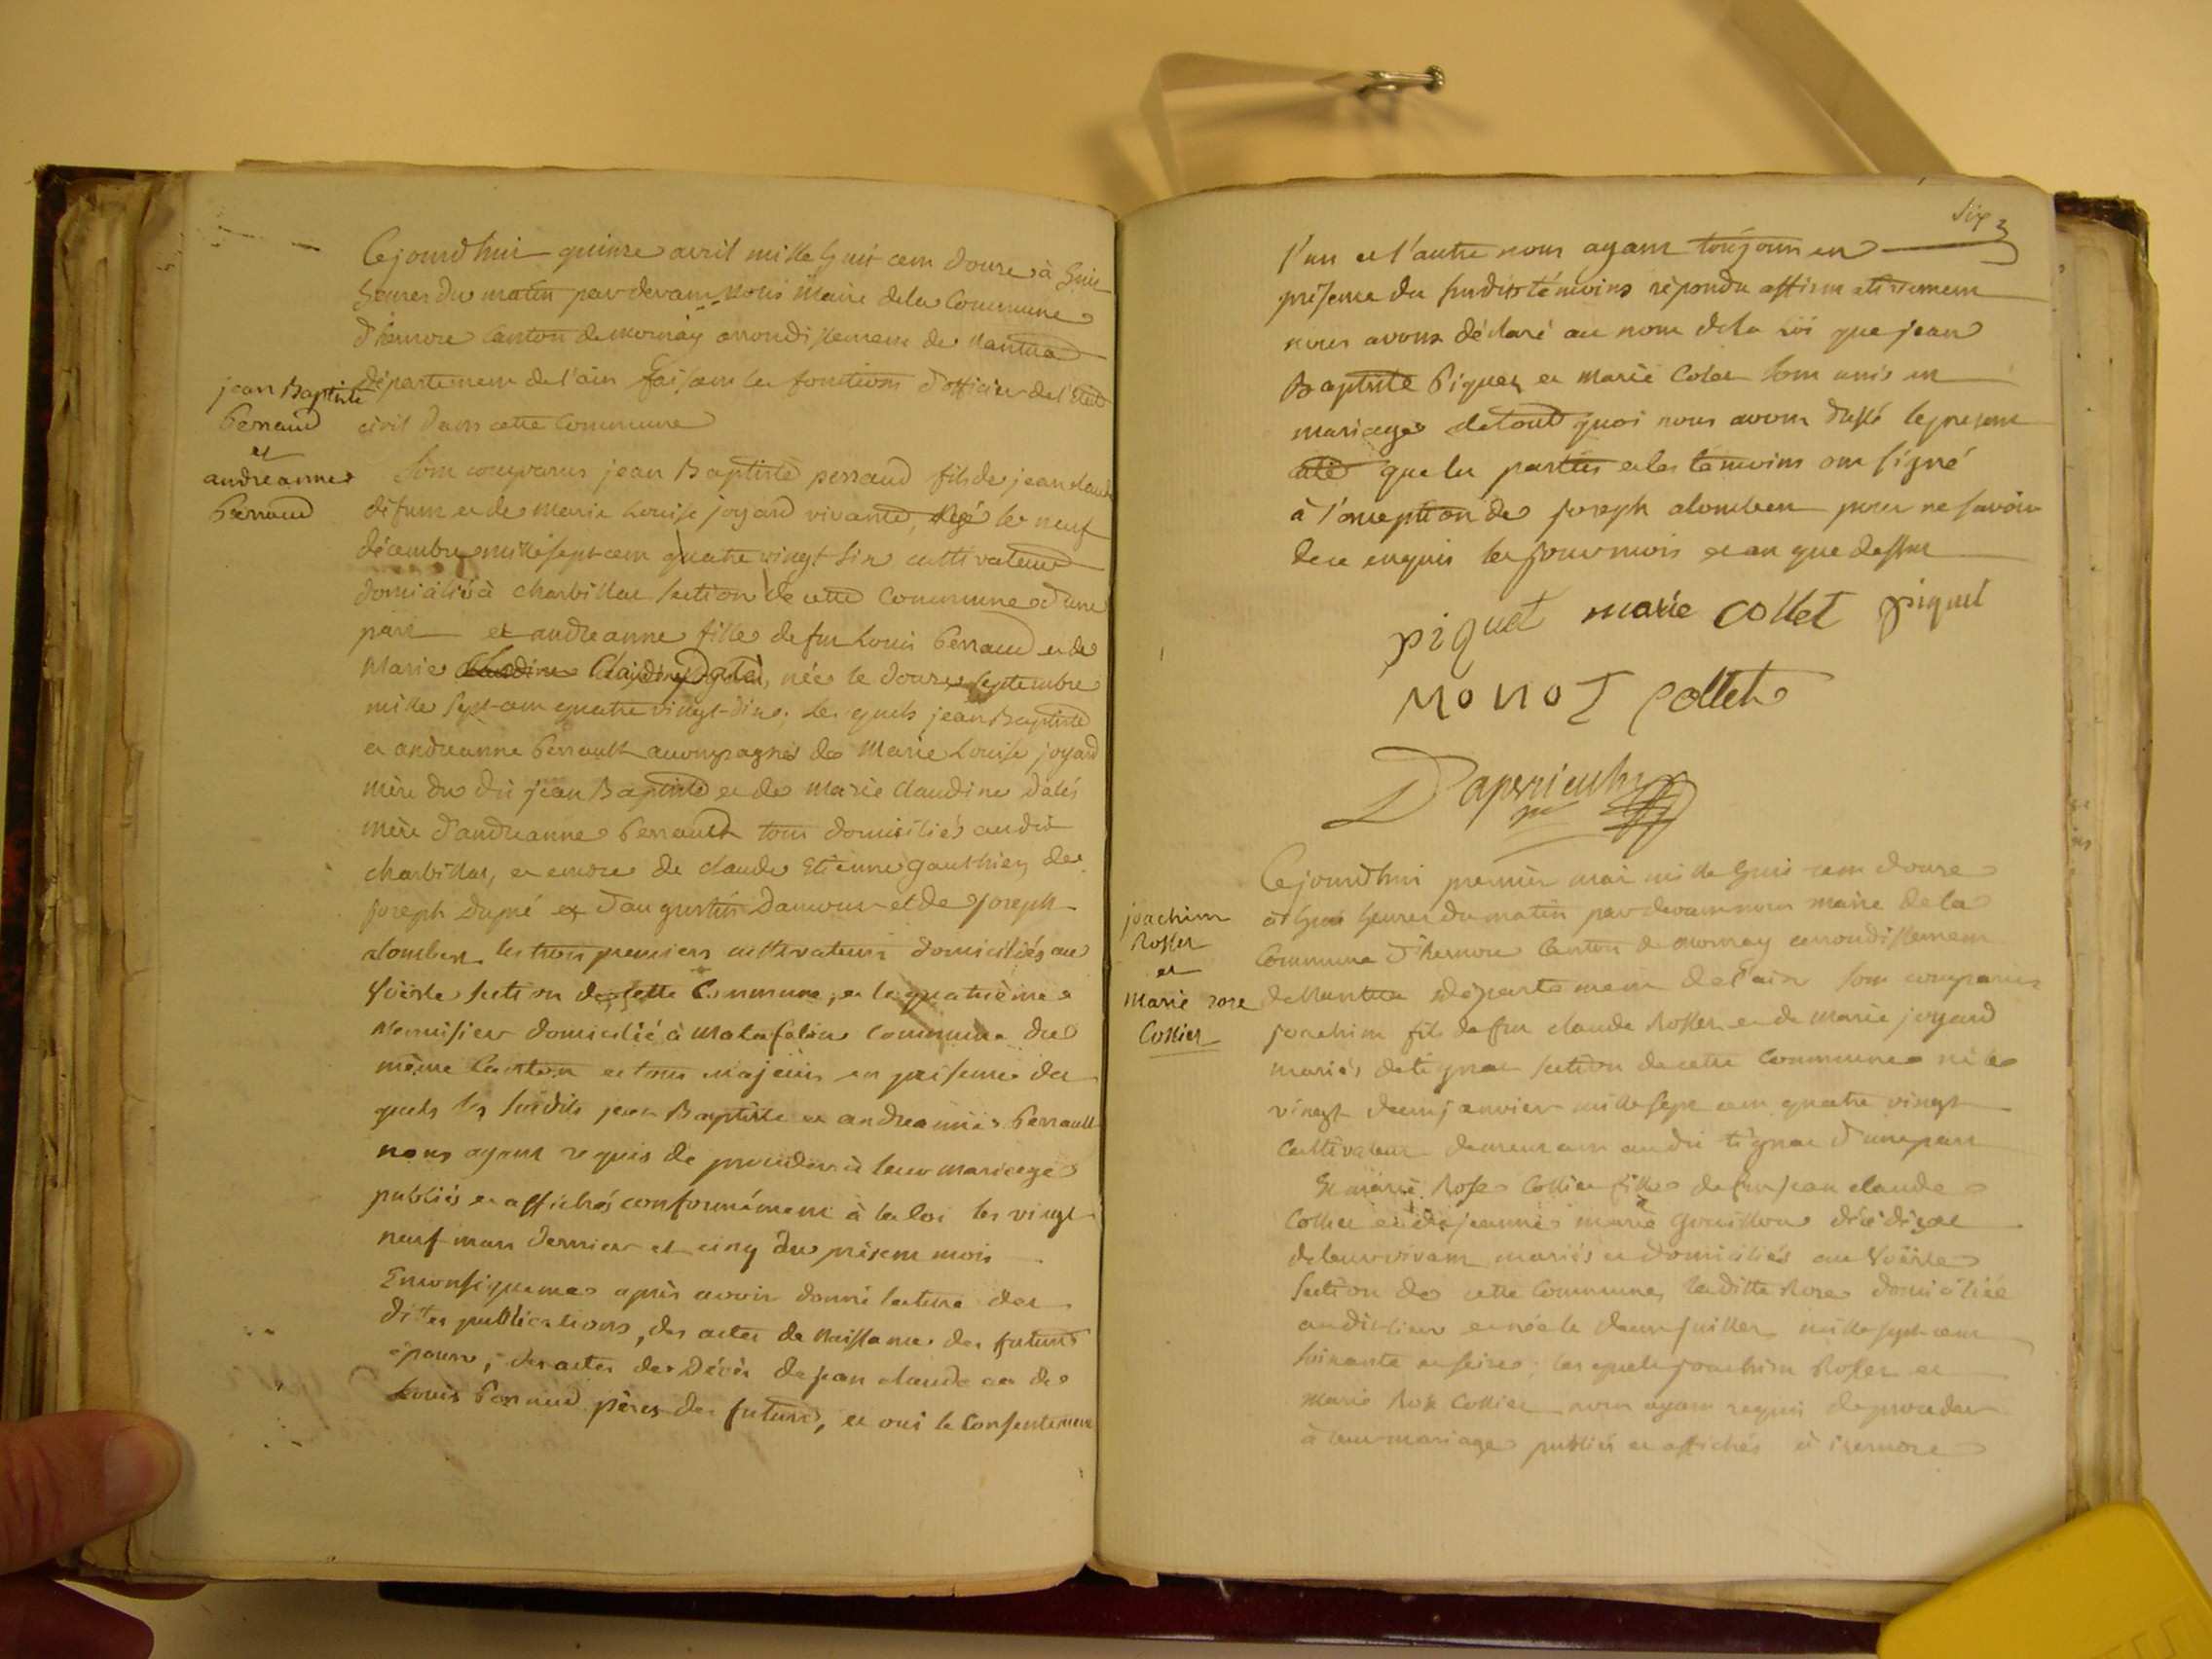 Cejourdhui quinze avril mille huit cent douze à huit
heures du matin pardevant nous Maire de la Commune
d'hernore Canton de mornay arrondissement de Nantua
département de l'ain faisant les fonctions d'officier de l'Etat
civil dans cette Commune
jean Baptiste
Perraud
et
andreanne
Perraud
Sont comparus jean Baptiste perraud fils de jean claude
défunt et de Marie Louise joyard vivante, le neuf
décembre mille sept cent quatre vingt six cultivateur
domicilié à charbillat section de cette Commune d'une
part et andreanne fille de feu Louis Perraud et de
Marie Claudine née le douze septembre
mille sept cent quatre vingt dix. Les quels jean Baptiste
et andreanne Perrault accompagnés de Marie Louise joyard
mère du dit jean Baptiste et de Marie claudine dalés
mère d'andreanne Perrault tous domiciliés au dit
charbillat, et encore de claude Etienne gauthier, de
joseph dupré et d'augustin damour et de joseph
alombert les trois premiers cultivateurs domiciliés au
Voërle section de cette Commune, et le quatrième
Menuisier domicilié à Matafelon commune du
même Canton et tous majeurs en présence des
quels les susdits jean Baptiste et andreanne Perrault
nous ayant requis de procéder à leur mariage
publiés et affichés conformément à la loi les vingt
neuf mars dernier et cinq du présent mois
En conséquence après avoir donné lecture des
dites publications, des actes de Naissance des futurs
époux, des actes de Décès de jean claude et de
Louis Perraud pères des futurs, et oui le Consentement
Six
l'un et l'autre nous ayant toujours en
présence des susdits témoins répondu affirmativement
nous avons déclaré au nom de la loi que jean
Baptiste Piquet et Marie Colet sont unis en
mariage de tout quoi nous avons dressé le present
acte que les parties et les témoins ont signé
à l'exception de joseph alombert pour ne savoir
de ce enquis les jour mois et an que dessus
piquet marie collet piquet
MONOT Collet
Cejourdhui premier mai mille huit cent douze
à huit heures du matin pardevant nous maire de la
Commune d'hernore Canton de mornay arrondissement
de Nantua département de l'ain Sont comparus
joachim
Rosset
et
Marie rose
Collier
joachim fils de feu claude Rosset et de marie joyard
mariés de tignac section de cette Commune né le
vingt deux janvier mille sept cent quatre vingt
Cultivateur demeurant au dit tignac d'une part
Et marie Rose Collier fille de feu jean claude
Collier et de jeanne marie Gouillon décédés et
de leur vivant mariés et domiciliés au Voërle
section de cette Commune, laditte Rose domiciliée
au dit lieu et née le deux juillet mille sept cent
soixante et seize. les quels joachim Rosset et
Marie Rose Collier nous ayant requis de procéder
à leur mariage publiés et affichés à izernore